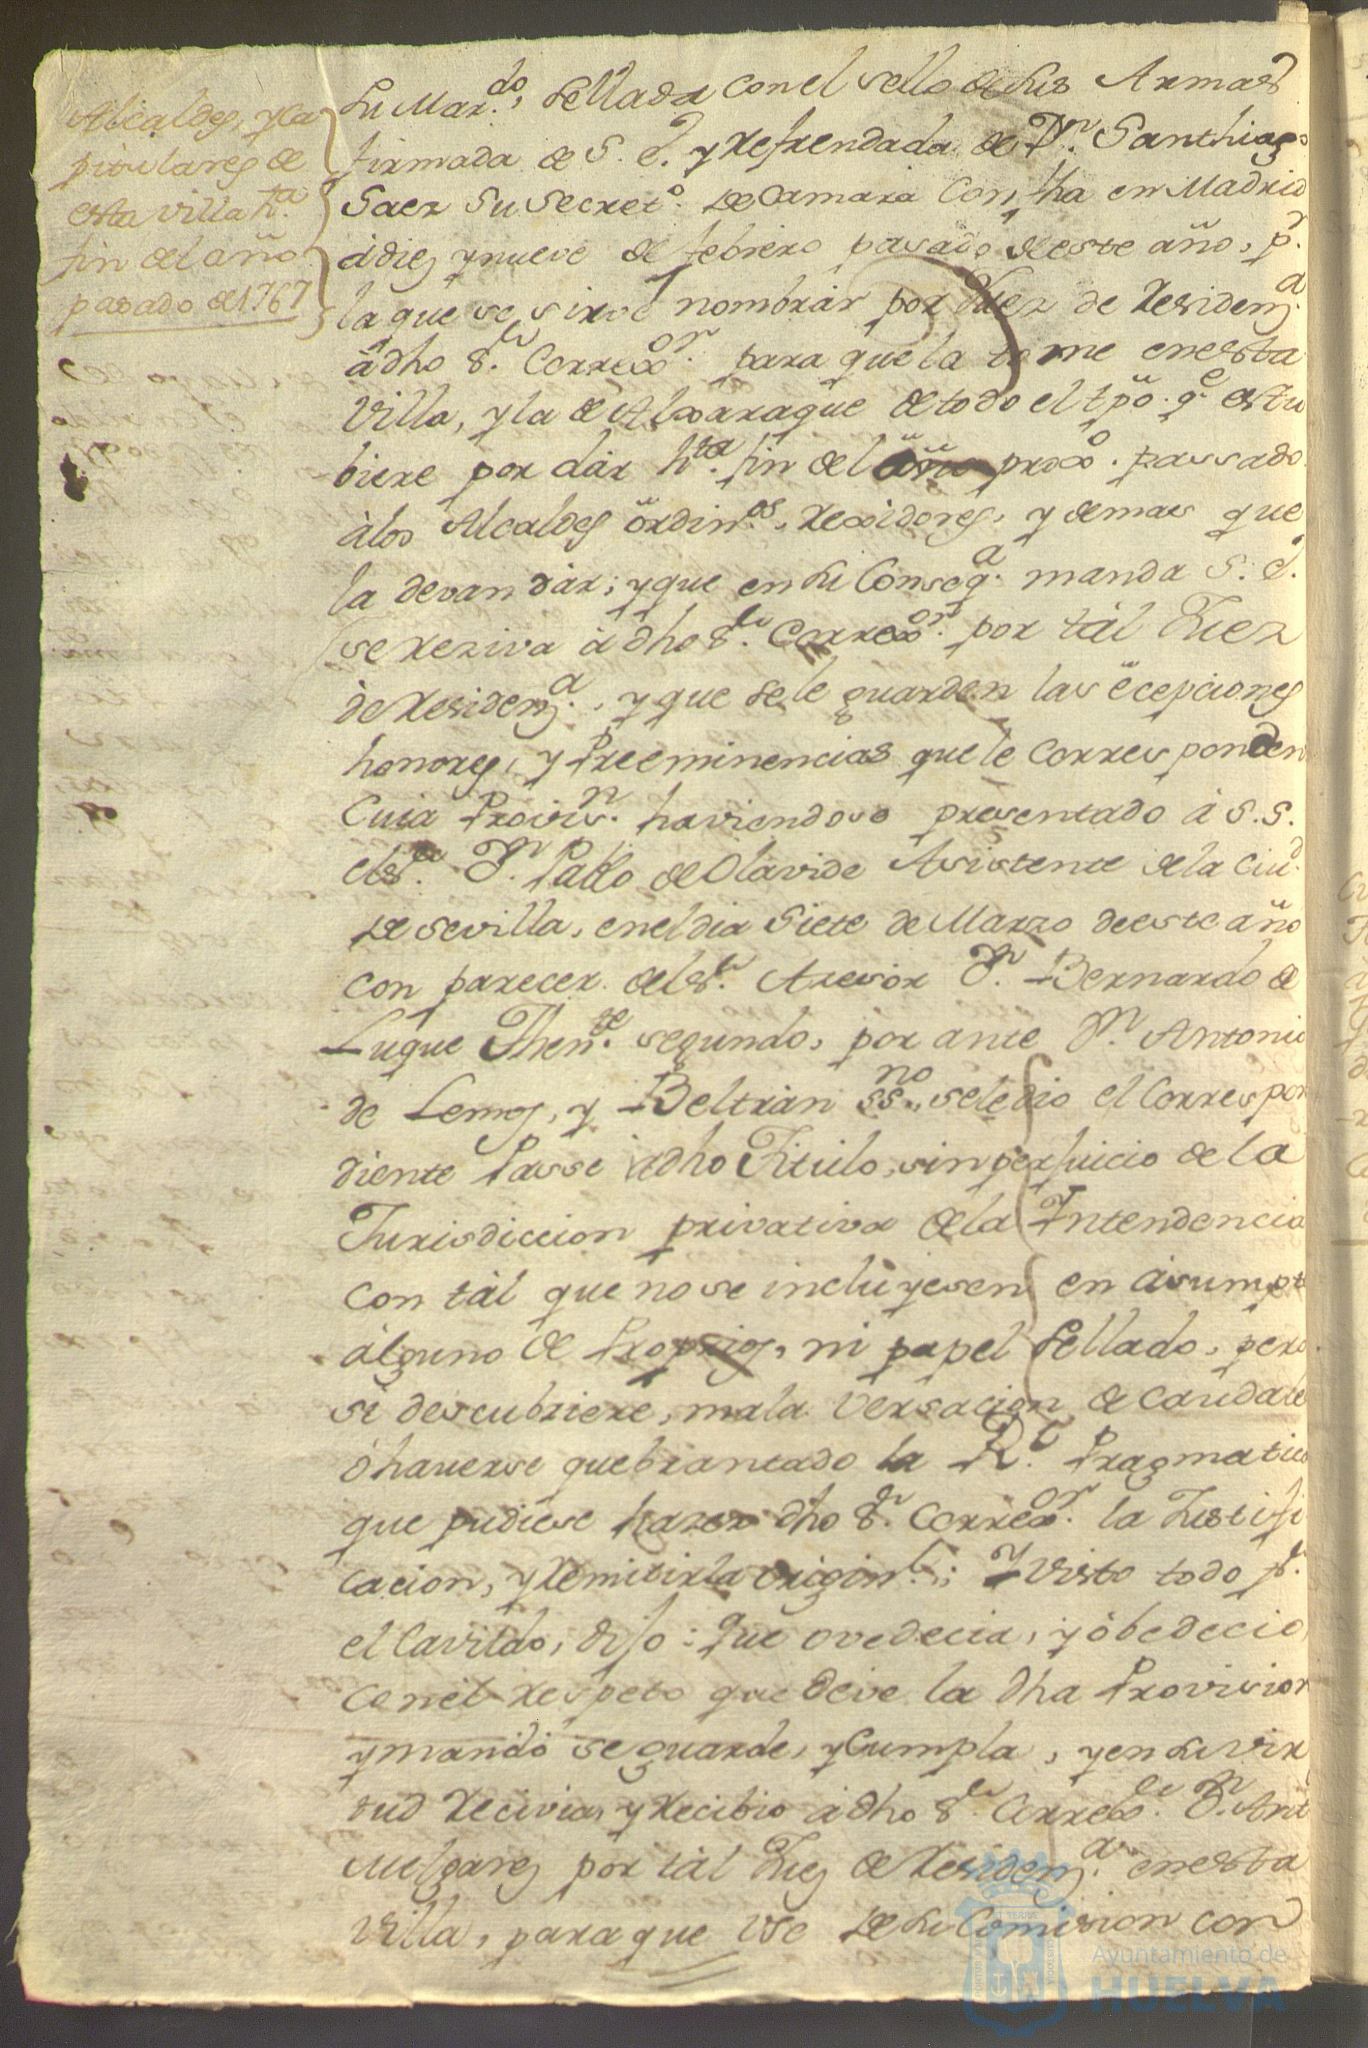 Alcaldes, y Ca
pitulares de
esta villa h.ta
fin del año
pasado de 1767
su Mar.do, sellada con el sello de sus Armas
firmada de S. E. y refrendada de D.n Santhiago
Saez su Secret.o de Camara con fha en Madrid
à diez y nueve de febrero pasado de este año, p.r
la que se sirve nombrar por Juez de Residenz.a
à dho S.or Correx.or para que la tome en esta
Villa, y la de Aljaraque de todo el tpo. q.e estu
biere por dàr h.ta fin del año proxo. passado
àlos Alcaldes ordin.os, Rexidores, y demas que
la devan dàr; y que en su Conseq.a manda S. E.
se reziva à dho S.or Correx.or por tàl Juez
de Residenz.a, y que se le guarden las ecepciones
honores, y Preeminencias que le corresponden
Cuia Provis.n haviendose presentado à S. S.
el S.or D.n Pablo de Olavide Asistente de la Ciu.d
de Sevilla, en el dia Siete de Marzo de este año
con parecer del S.or Asesor D.n Bernardo de
Luque Then.te segundo, por ante D.n Antonio
de Lemos, y Beltràn ss.no, se le dio el Correspon
diente Passe à dho Titulo, sin perjuicio de la
Jurisdiccion privativa de la Intendencia
con tàl que no se incluyesen en asumpto
alguno de Proprios, ni papel Sellado, pero
si descubriere, mala versacion de caudales
ò haverse quebrantado la R.l Pragmatica
que pudiese hazer dho S.or Correx.or la Justifi
cacion, y remitirla origin.l; Y visto todo p.r
el Cavildo, dijo: que ovedecia, y òbedecio
con el respeto que deve la dha Provision
y mandò se guarde, y Cumpla, y en su vir
tud recivia, y recibio à dho S.or Correx.or D.n Ant.
Melgarej por tàl Juez de Residenz.a en esta
Villa, para que use de su Comision con
Ayuntamiento de
HUELVA